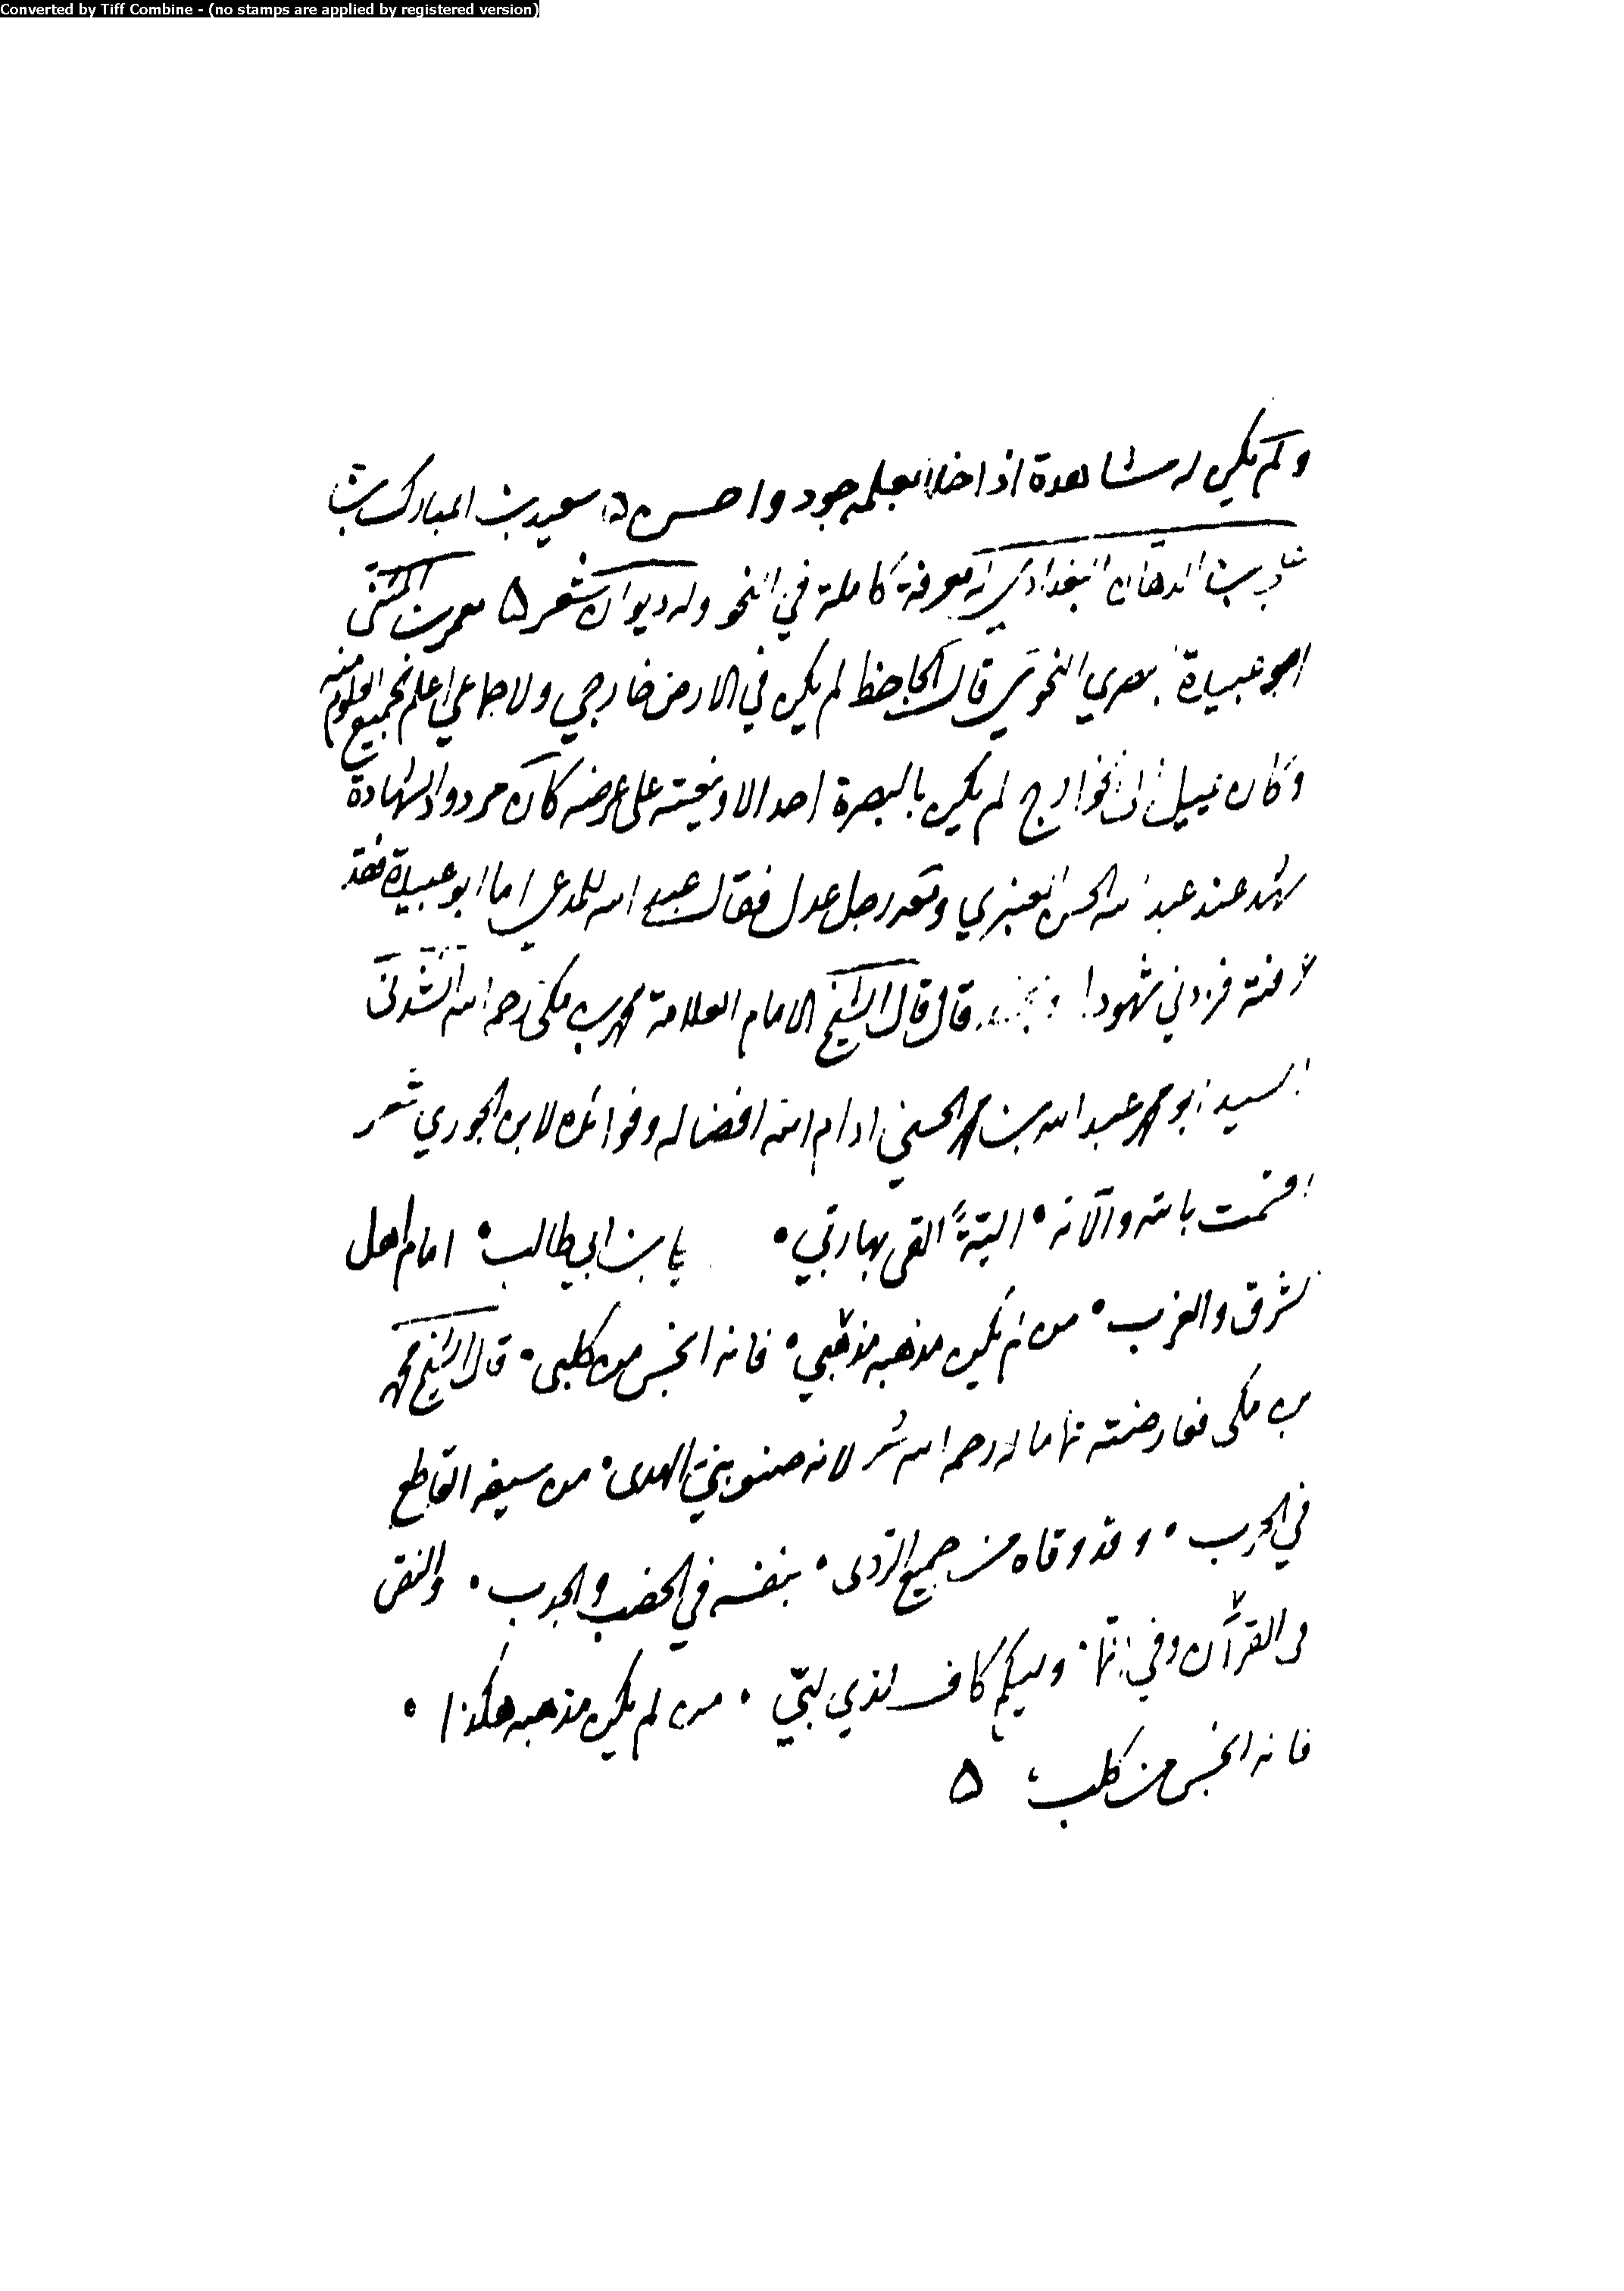 Converted by Tiff Combine - (no stamps are applied by registered version)
ولم يكن له مشاهدة اذا خلا بعلمه جود واحسن ۵ سعيد بن المبارك بن
بن الدهان البغدادي له معرفة كاملة في النحو وله ديوان شعر ۵ معمر بن المثنى
ابو عبيدة البصري النحوي قال الجاحظ لم يكن في الارض خارجي ولا جماعي اعلم بجميع العلوم منه
وكان يميل الى الخوارج لم يكن بالبصرة احد الا ويغيبته على عرضه كان مردود الشهادة
شهد عند عبد الله الحسن العنبري ومعه رجل عدل فقال عبيد الله للمدعي اما ابو عبيدة فقد
عرفته فزدني شهودا قال قال الشيخ الامام العلامة محمد بن مكي رحمه الله انشدني
السيد ابو محمد عبد الله بن محمد الحسيني ادام الله افضاله وفوائده لابن الجوزي شعر
اقسمت بالله وآلائه • الية القى بها ربي • بن ابي طالب • امام اهل
الشرق والغرب • من لم يكن مذهبه مذهبي • فانه انجس من كلبي • قال الشيخ محمد
بن مكي فعارضته تماما له رحمه الله شعر لانه صنو نبي الهدى • من سيفه القاطع
في الحرب • وقد وقاه من جميع الردى • بنفسه في الخصب والجدب • والنص
في القرآن وفي انما • وليكم كاف لذي لب • من لم يكن مذهبه هكذا •
فانه انجس من كلب ۵